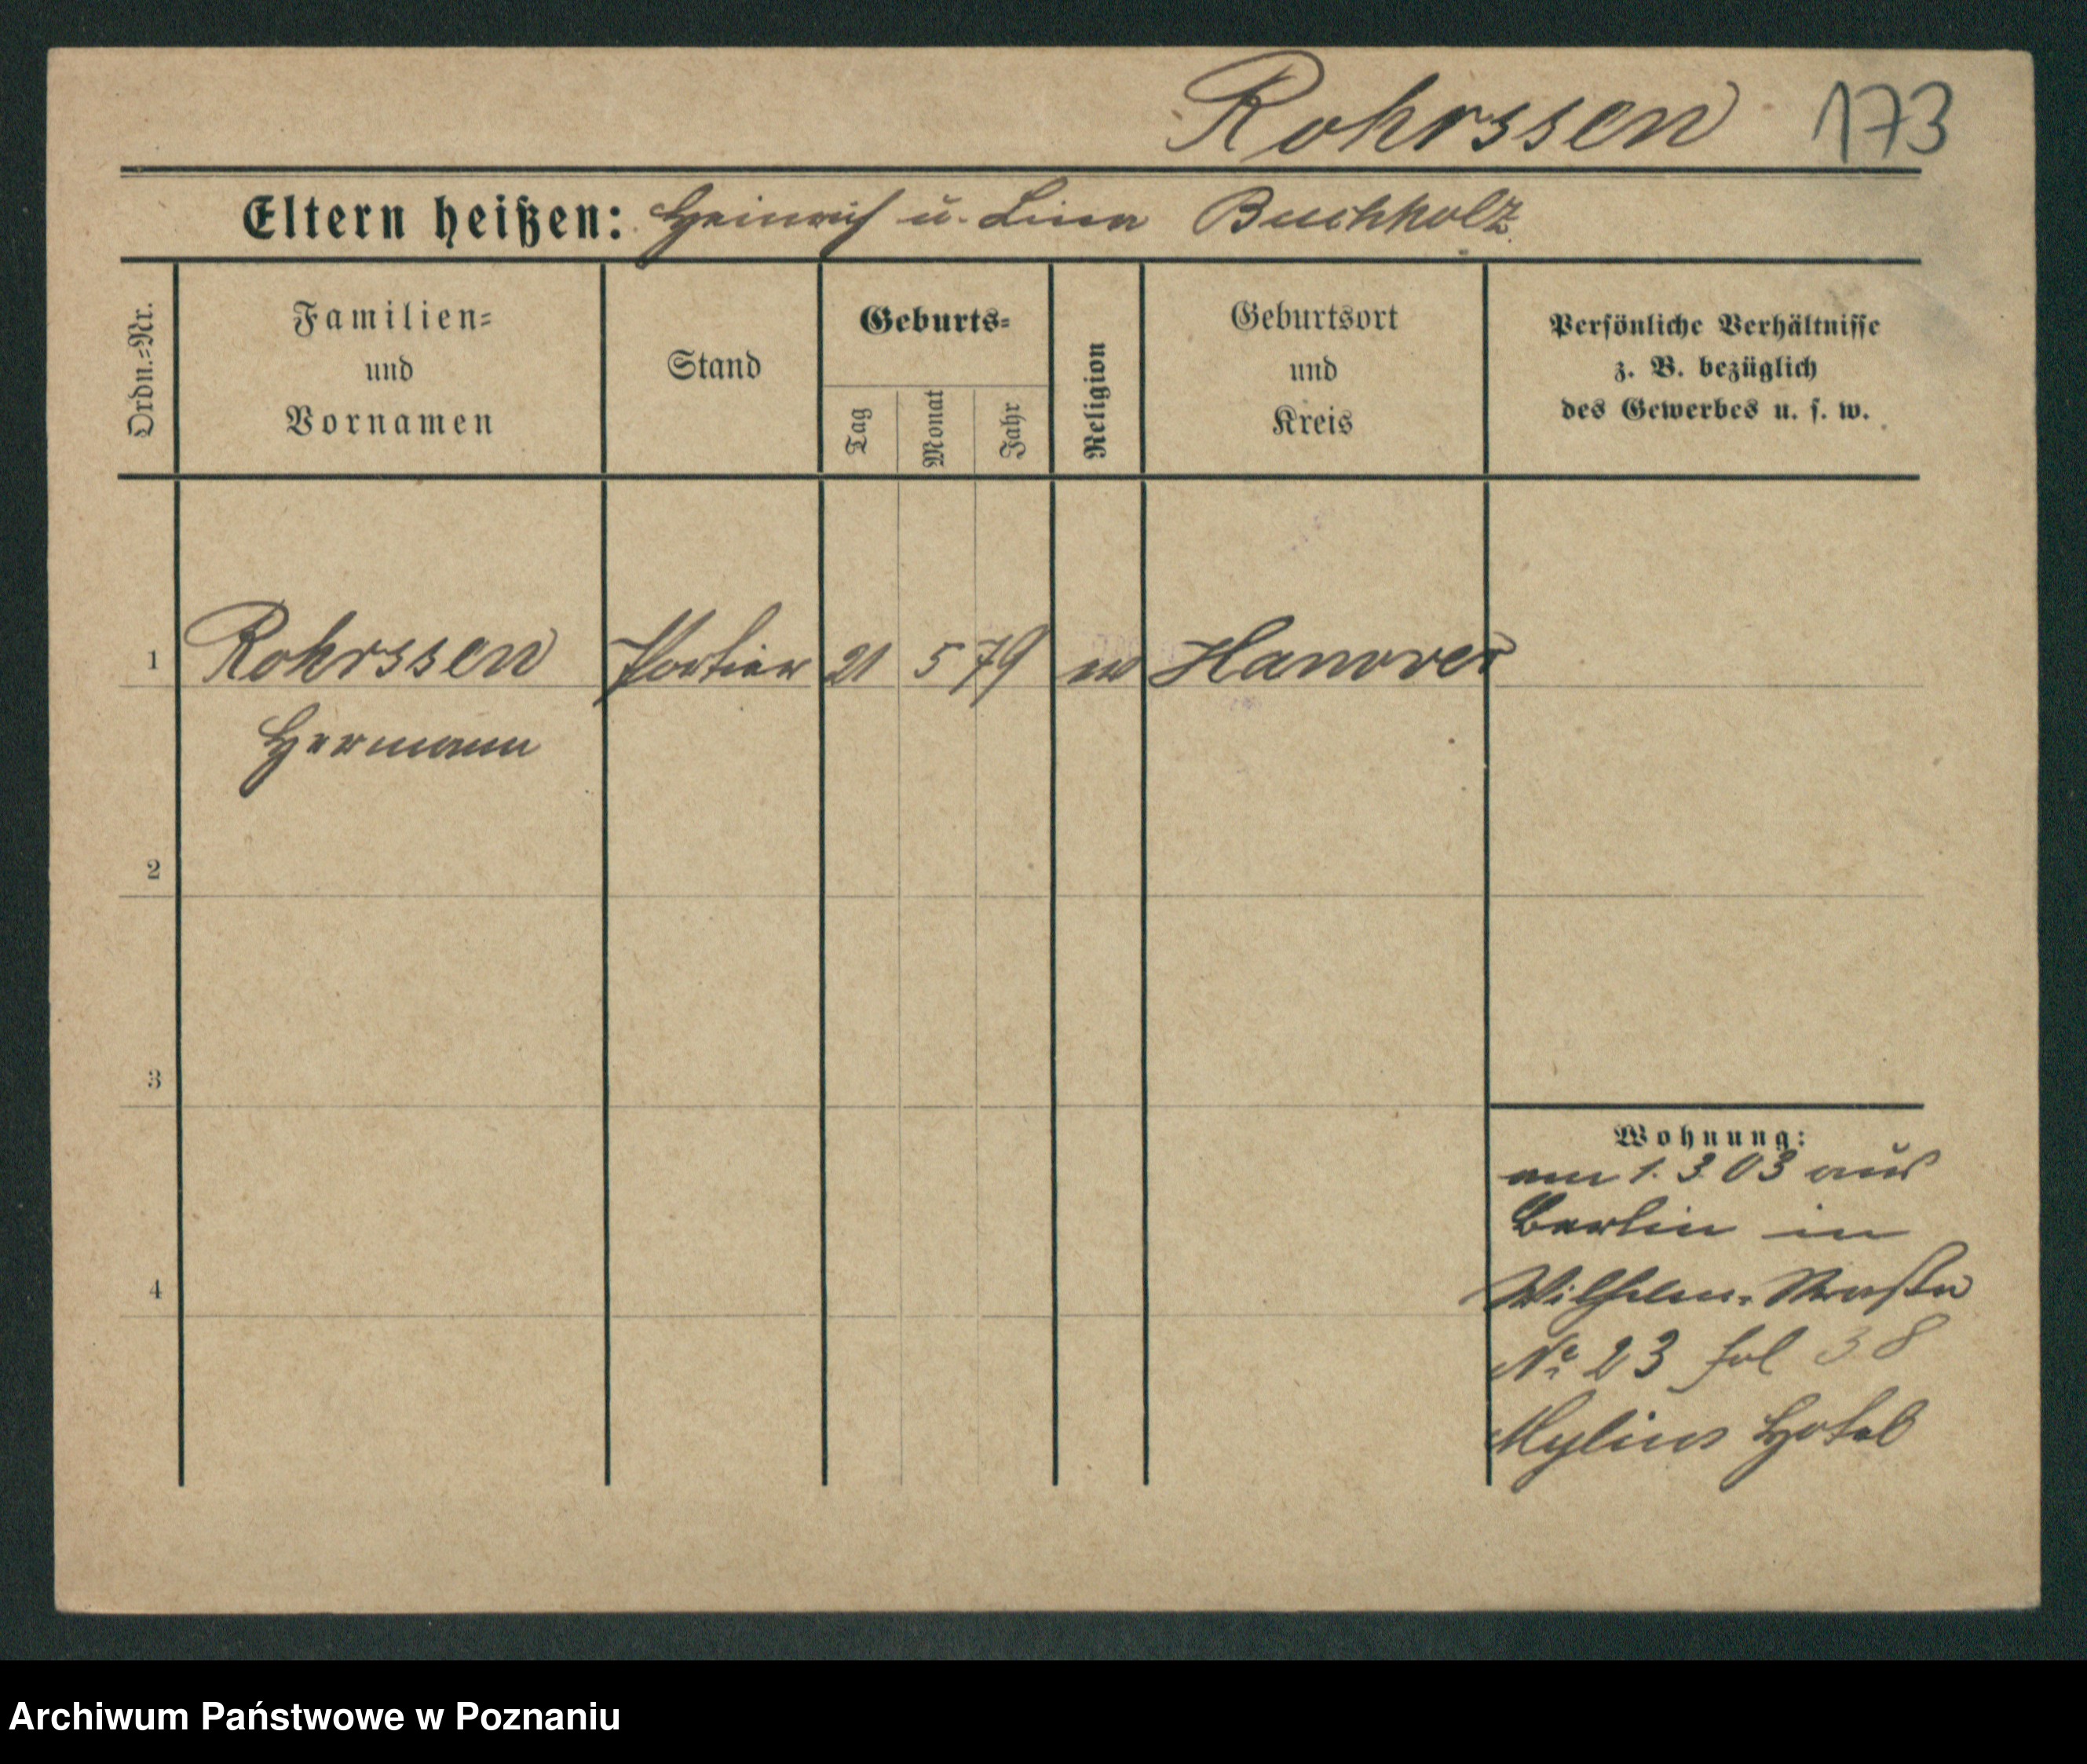 Rohrssen 173
Eltern heißen: Heinrich u. Lina Buchholz
Ordn.=Nr.
Familien=
und
Vornamen
Stand
Geburts=
Tag
Monat
Jahr
Religion
Geburtsort
und
Kreis
Persönliche Verhältnisse
z. B. bezüglich
des Gewerbes u. s. w.
1 Rohrssen Portier 21 5 79 ev Hanover
Hermann
2
3
4
Wohnung:
am 1. 3. 03 aus
Berlin in
Wilhelm-Straße
No 23 fol 38
Mylius Hotel
Archiwum Państwowe w Poznaniu